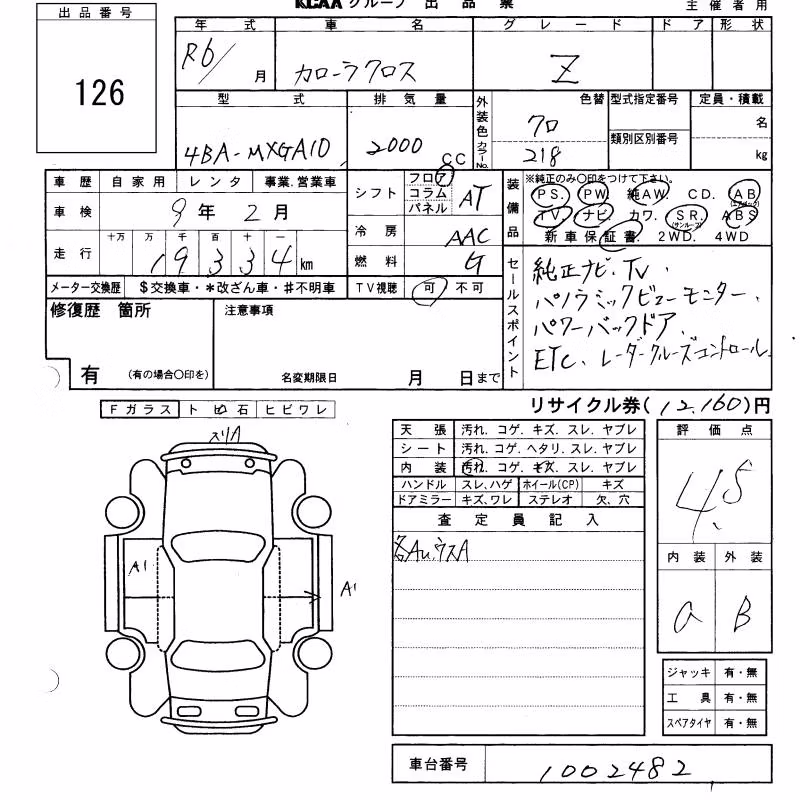 出品番号
126
KCAA グループ 出 品 票
主催者用
年 式 車 名 グレード ドア 形状
R6/ 月 カローラクロス Z
型 式 排気量 外装色 カラーNo. 色替 型式指定番号 定員・積載
4BA-MXGA10 2000 CC クロ 218 類別区別番号 名 kg
車歴 自家用 レンタ 事業.営業車
車検 9年 2月
走行 十万 万 千 百 十 一
1 9 3 3 4 km
メーター交換歴 $交換車・*改ざん車・#不明車
シフト フロア コラム パネル AT
冷房 AAC
燃料 G
TV視聴 可 不可
装備品 ※純正のみ〇印をつけて下さい。
PS. PW. 純AW. CD. AB (エアバッグ)
TV. ナビ カワ. SR. (サンルーフ) ABS
新車保証書. 2WD. 4WD
セールスポイント
純正ナビ、TV、
パノラミックビューモニター、
パワーバックドア、
ETC、レーダークルーズコントロール
修復歴 箇所
有 (有の場合〇印を)
注意事項
名変期限日 月 日まで
リサイクル券(12,160)円
Fガラス トビ石 ヒビワレ
スリA
A1
A1
天張 汚れ. コゲ. キズ. スレ. ヤブレ
シート 汚れ. コゲ. ヘタリ. スレ. ヤブレ
内装 汚れ. コゲ. キズ. スレ. ヤブレ
ハンドル スレ、ハゲ ホイール(CP) キズ
ドアミラー キズ、ワレ ステレオ 欠、穴
査定員記入
各AU、ウスA
評価点
4.5
内装 外装
a B
ジャッキ 有・無
工具 有・無
スペアタイヤ 有・無
車台番号 1002482